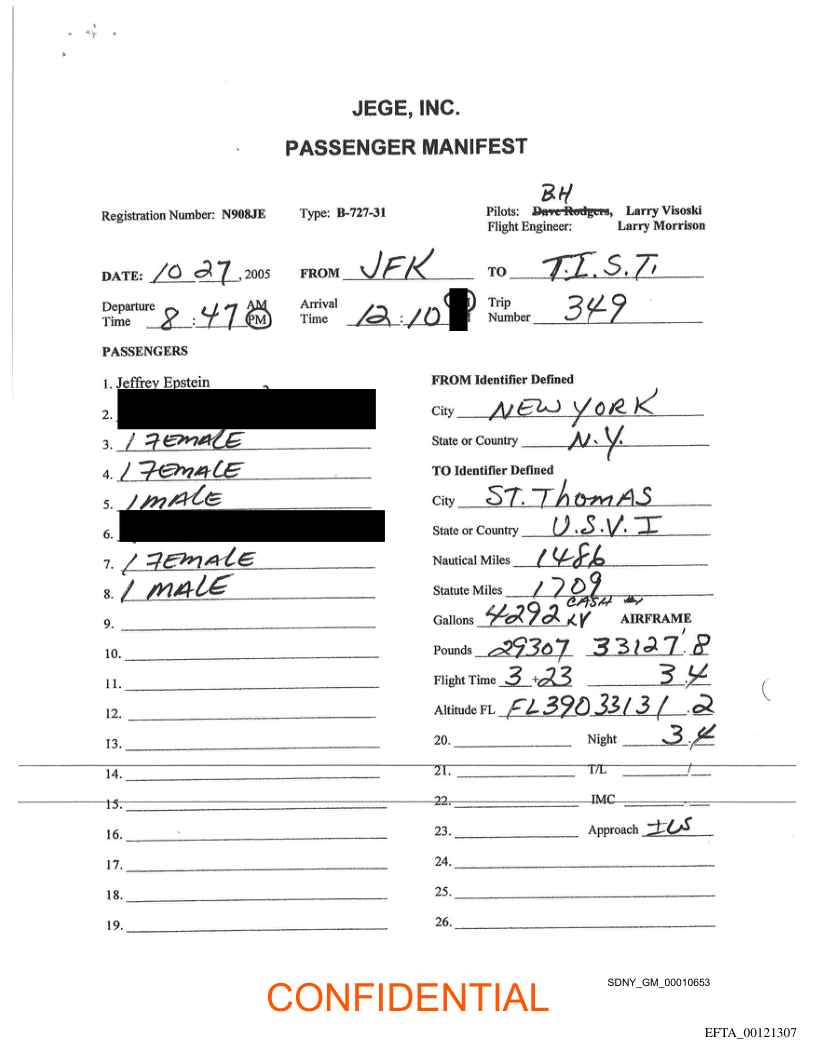 JEGE, INC.
PASSENGER MANIFEST
BH
Registration Number: N908JE Type: B-727-31 Pilots: Dave Rodgers, Larry Visoski
Flight Engineer: Larry Morrison
DATE: 10 27, 2005 FROM JFK TO T.I.S.T.
Departure Time 8:47 AM PM Arrival Time 12:10 Trip Number 349
PASSENGERS
1. Jeffrey Epstein
2.
3. 1 FEMALE
4. 1 FEMALE
5. 1 MALE
6.
7. 1 FEMALE
8. 1 MALE
9.
10.
11.
12.
13.
14.
15.
16.
17.
18.
19.
FROM Identifier Defined
City NEW YORK
State or Country N.Y.
TO Identifier Defined
City ST. ThomAS
State or Country U.S.V.I
Nautical Miles 1486
Statute Miles 1709
CASH
Gallons 4292 AIRFRAME
Pounds 29307 33127.8
Flight Time 3+23 3.4
Altitude FL FL390 33131.2
20. Night 3.4
21. T/L /
22. IMC .
23. Approach ILS
24.
25.
26.
CONFIDENTIAL
SDNY_GM_00010653
EFTA_00121307